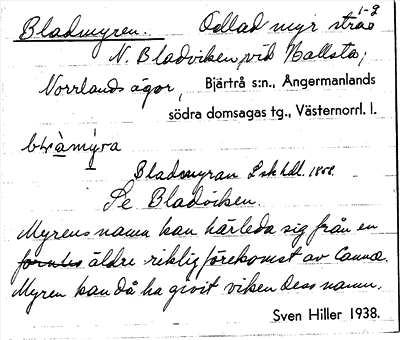 Bladmyren. Odlad myr strax
N. Bladviken, vid Hallsta,
Norrlands ägor, Bjärtrå s:n., Ångermanlands
södra domsagas tg., Västernorrl. l.
Bladmyran L sk hdl. 1858.
Se Bladviken.
Myrens namn kan härleda sig från en
äldre riklig förekomst av Canna.
Myren kan då ha givit viken dess namn.
Sven Hiller 1938.